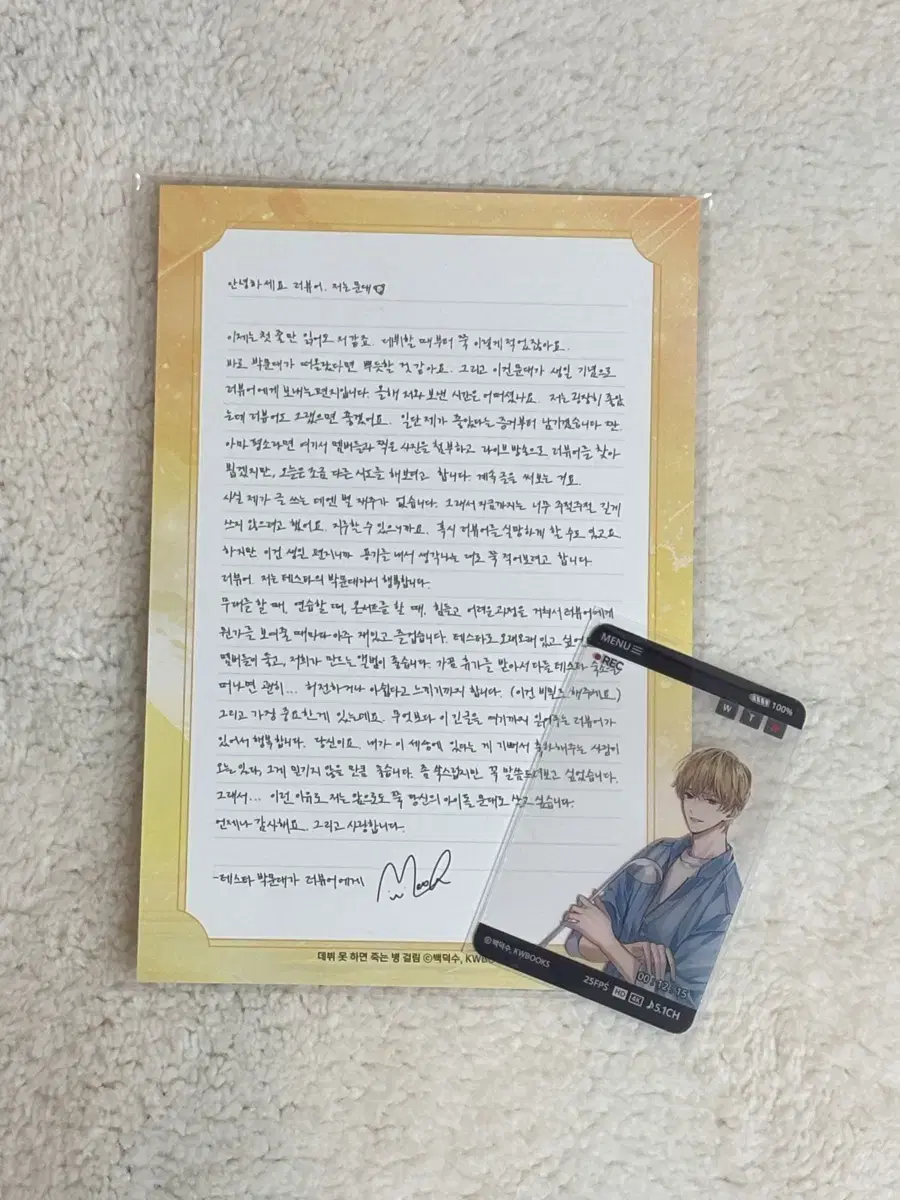 안녕하세요 러뷰어. 저는 문대
이제는 첫 줄만 읽어도 저 같죠. 데뷔할 때부터 쭉 이렇게 적었잖아요.
바로 박문대가 떠올랐다면 뿌듯할 것 같아요. 그리고 이건 문대가 생일 기념으로
러뷰어에게 보내는 편지입니다. 올해 저와 보낸 시간은 어떠셨나요. 저는 굉장히 좋았
는데 러뷰어도 그랬으면 좋겠어요. 일단 제가 좋았다는 증거부터 남기겠습니다 딴
아마 평소라면 여기서 멤버들과 찍은 사진을 첨부하고 라이브 방송으로 러뷰어를 찾아
뵙겠지만, 오늘은 조금 다른 시도를 해보려고 합니다. 계속 글을 써보는 거요.
사실 제가 글 쓰는 데엔 별 재주가 없습니다. 그래서 지금까지는 너무 주적주적 길게
쓰지 않으려고 했어요. 지루할 수 있으니까요. 혹시 러뷰어를 실망하게 할 수도 있고요
하지만 이건 생일 편지니까 용기를 내서 생각나는 대로 쭉 적어보려고 합니다
러뷰어. 저는 테스타의 박문대라서 행복합니다.
무대를 할 때, 연습할 때, 콘서트를 할 때, 힘들고 어려운 과정을 거쳐서 러뷰어에게
뭔가를 보여줄 때마다 아주 재밌고 즐겁습니다. 테스타로 오래오래 있고 싶어
멤버들이 웃고, 저희가 만드는 앨범이 좋습니다. 가끔 휴가를 받아서 다들 테스타 숙소를
떠나면 괜히... 허전하거나 아쉽다고 느끼기까지 합니다. (이건 비밀로 해주세요.)
그리고 가장 중요한 게 있는데요. 무엇보다 이 긴 글을 여기까지 읽어주는 러뷰어가
있어서 행복합니다. 당신이요. 내가 이 세상에 있다는 게 기뻐서 축하해주는 사람이
오늘 있다, 그게 믿기지 않을 만큼 좋습니다. 좀 쑥스럽지만 꼭 말씀드려보고 싶었습니다.
그래서... 이런 이유로 저는 앞으로도 쭉 당신의 아이돌 문대로 살고 싶습니다.
언제나 감사해요. 그리고 사랑합니다.
-테스타 박문대가 러뷰어에게
데뷔 못 하면 죽는 병 걸림 ©백덕수, KWBO
MENU
REC
100%
W T
©백덕수, KWBOOKS
00:12:15
25FPS HD 4K ♪5.1CH